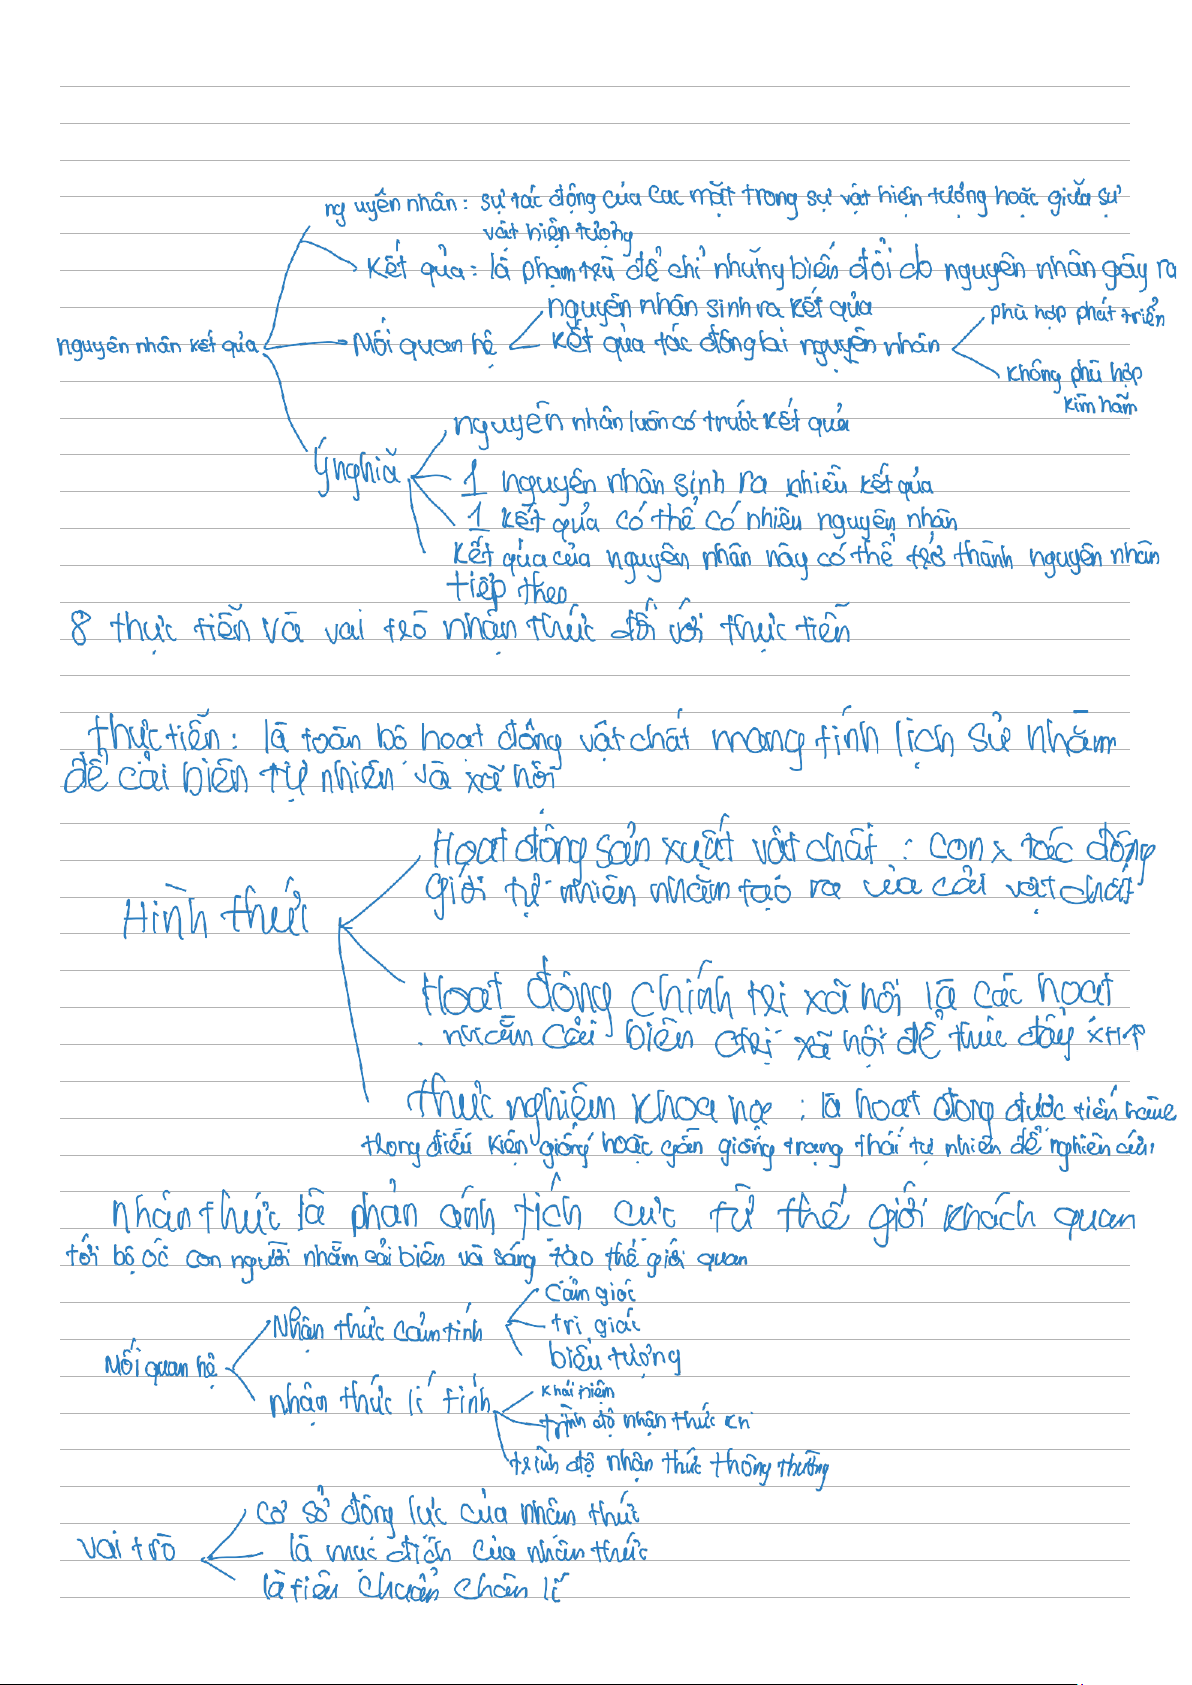 nguyên nhân: sự tác động của các mặt trong sự vật hiện tượng hoặc giữa sự
vật hiện tượng
Kết quả: là phạm trù để chỉ những biến đổi do nguyên nhân gây ra
nguyên nhân sinh ra kết quả
phù hợp phát triển
nguyên nhân kết quả
Mối quan hệ
kết quả tác động lại nguyên nhân
không phù hợp
kìm hãm
nguyên nhân luôn có trước kết quả
Ý nghĩa
1 nguyên nhân sinh ra nhiều kết quả
1 kết quả có thể có nhiều nguyên nhân
kết quả của nguyên nhân này có thể trở thành nguyên nhân
tiếp theo
8 thực tiễn và vai trò nhận thức đối với thực tiễn
thực tiễn: là toàn bộ hoạt động vật chất mang tính lịch sử nhằm
để cải biên tự nhiên và xã hội
Hoạt động sản xuất vật chất: con x tác động
giới tự nhiên nhằm tạo ra của cải vật chất
Hình thức
Hoạt động chính trị xã hội là các hoạt
nhằm cải biên xã hội để thúc đẩy
thực nghiệm khoa học: là hoạt động được tiến hành
trong điều kiện giống hoặc gần giống trạng thái tự nhiên để nghiên cứu
nhận thức là phản ánh tích cực từ thế giới khách quan
tới bộ óc con người nhằm cải biên và sáng tạo thế giới quan
Cảm giác
Nhận thức cảm tính
tri giác
biểu tượng
Mối quan hệ
khái niệm
nhận thức lí tính
trình độ nhận thức kn
trình độ nhận thức thông thường
cơ sở động lực của nhận thức
vai trò
là mục đích của nhận thức
là tiêu chuẩn chân lí